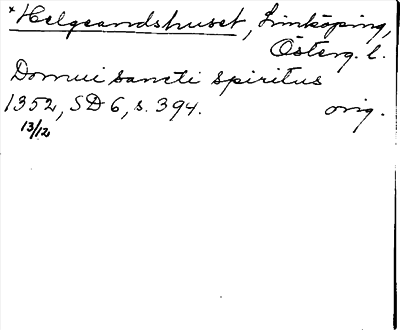 * Helgeandshuset, Linköping,
Österg. l.
Domui sancti spiritus
1352, SD 6, s. 394. orig.
13/12